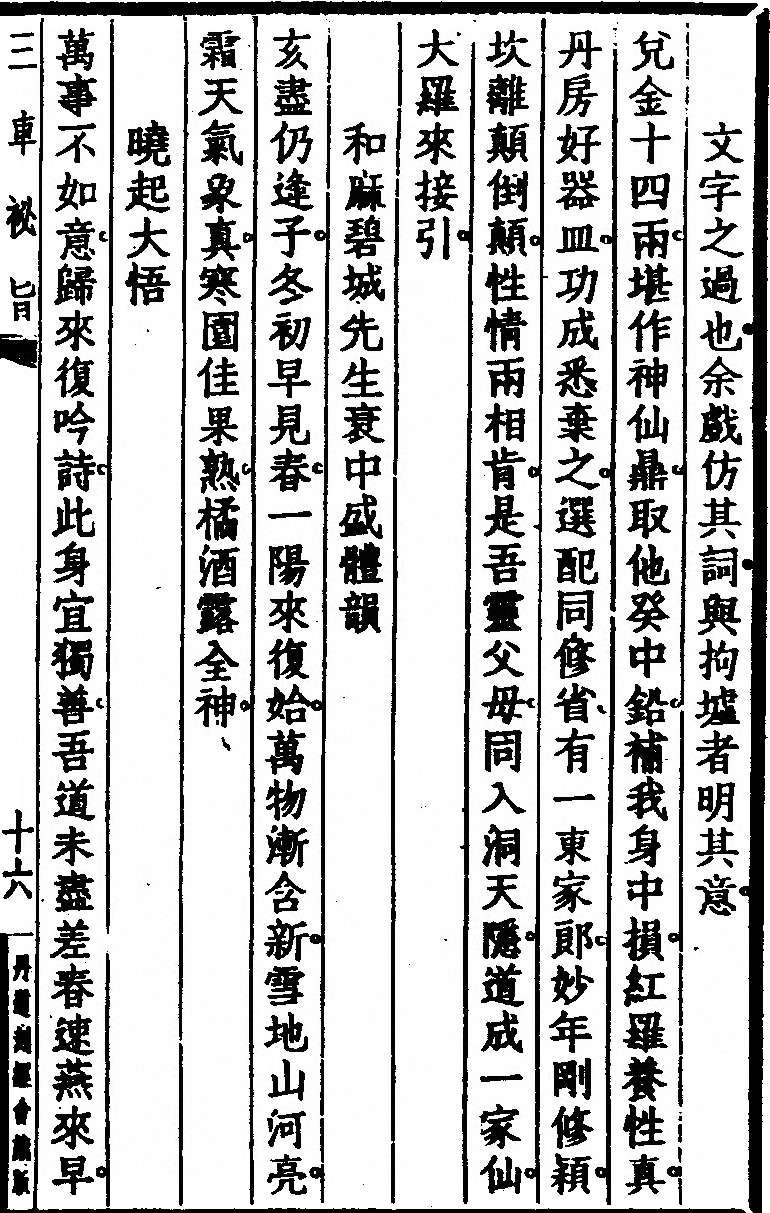 文字之過也余戲仿其詞與拘墟者明其意
兌金十四兩堪作神仙鼎取他癸中鉛補我身中損紅羅養性真
丹房好器皿功成悉棄之選配同修省有一東家郎妙年剛修穎
坎離顛倒顛性情兩相肯是吾靈父母同入洞天隱道成一家仙
大羅來接引
和麻碧城先生衰中盛體韻
亥盡仍逢子冬初早見春一陽來復始萬物漸含新雪地山河亮
霜天氣象真寒園佳果熟橘酒露全神
曉起大悟
萬事不如意歸來復吟詩此身宜獨善吾道未盡差春速燕來早
三車祕旨
十六
丹道刻經會藏版